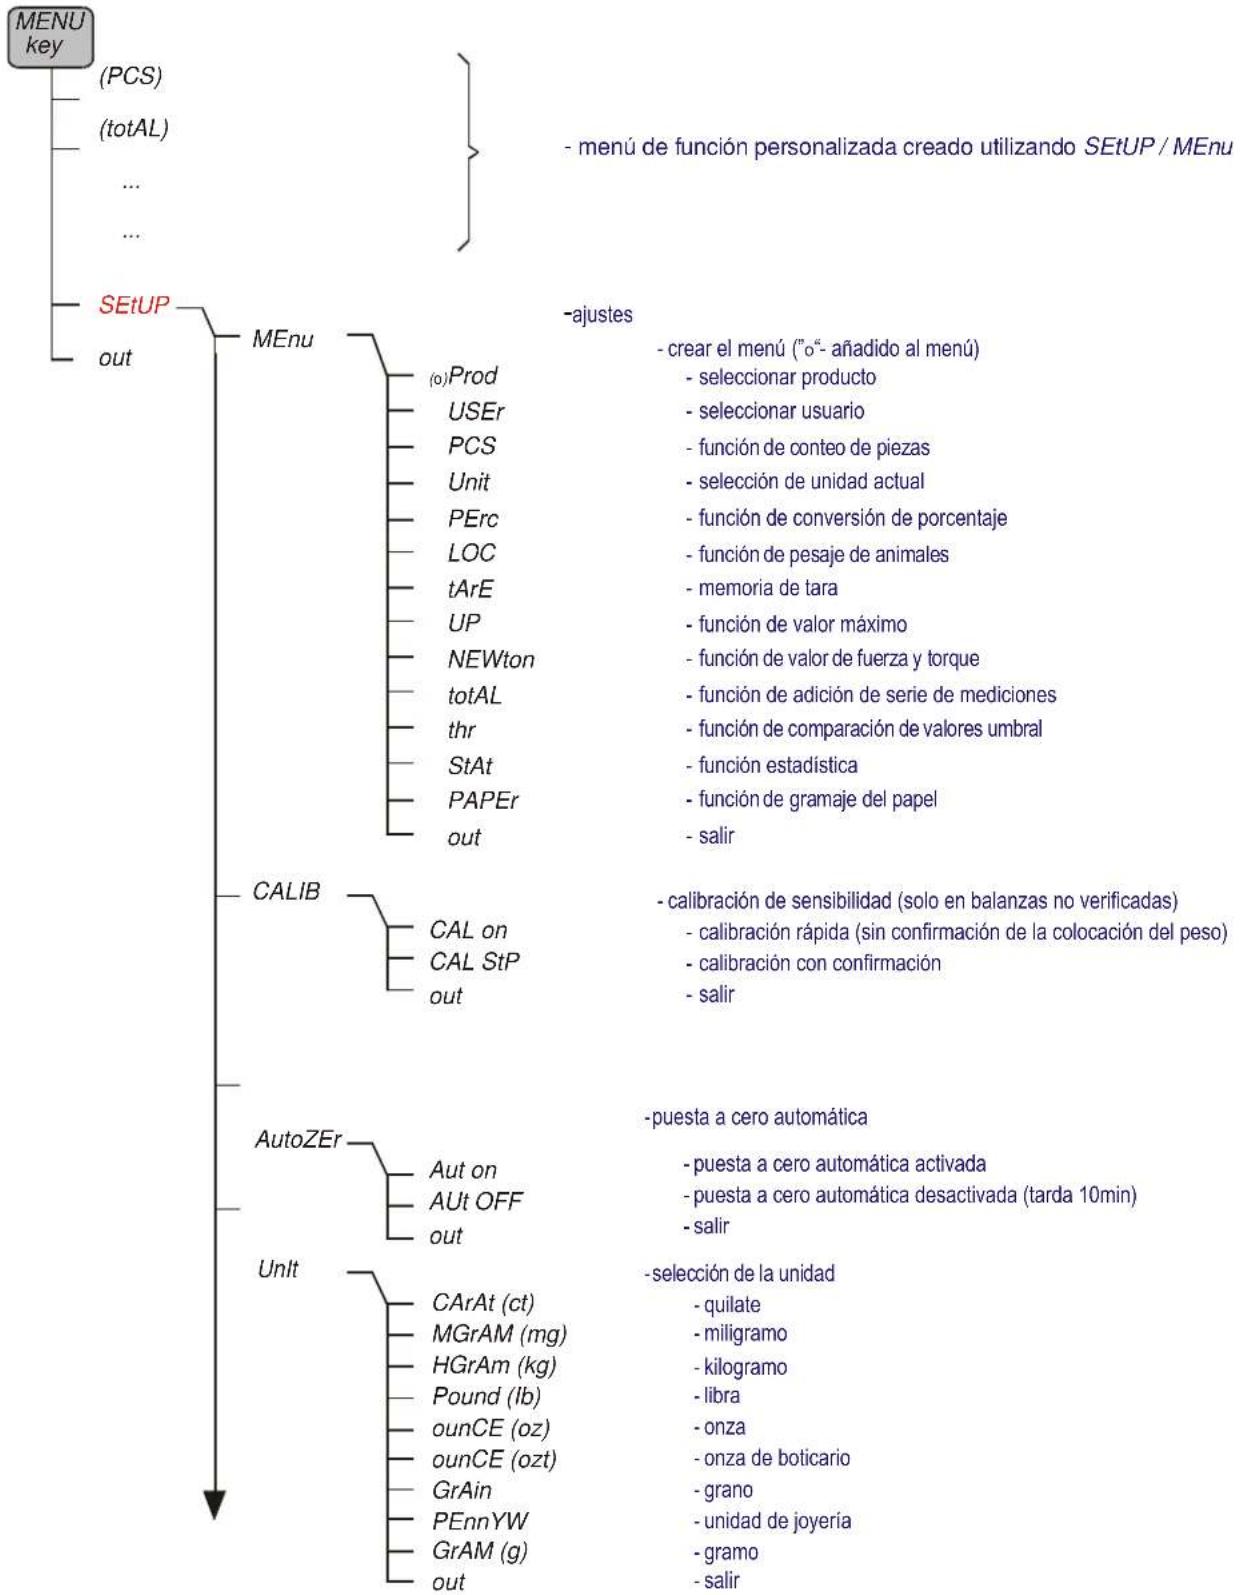 MENU
key
(PCS)
(totAL)
...
...
- menú de función personalizada creado utilizando SEtUP / MEnu
SEtUP
-ajustes
out
MEnu
- crear el menú ("o"- añadido al menú)
(o)Prod - seleccionar producto
USEr - seleccionar usuario
PCS - función de conteo de piezas
Unit - selección de unidad actual
PErc - función de conversión de porcentaje
LOC - función de pesaje de animales
tArE - memoria de tara
UP - función de valor máximo
NEWton - función de valor de fuerza y torque
totAL - función de adición de serie de mediciones
thr - función de comparación de valores umbral
StAt - función estadística
PAPEr - función de gramaje del papel
out - salir
CALIB - calibración de sensibilidad (solo en balanzas no verificadas)
CAL on - calibración rápida (sin confirmación de la colocación del peso)
CAL StP - calibración con confirmación
out - salir
AutoZEr -puesta a cero automática
Aut on - puesta a cero automática activada
AUt OFF - puesta a cero automática desactivada (tarda 10min)
out - salir
UnIt - selección de la unidad
CArAt (ct) - quilate
MGrAM (mg) - miligramo
HGrAm (kg) - kilogramo
Pound (lb) - libra
ounCE (oz) - onza
ounCE (ozt) - onza de boticario
GrAin - grano
PEnnYW - unidad de joyería
GrAM (g) - gramo
out - salir